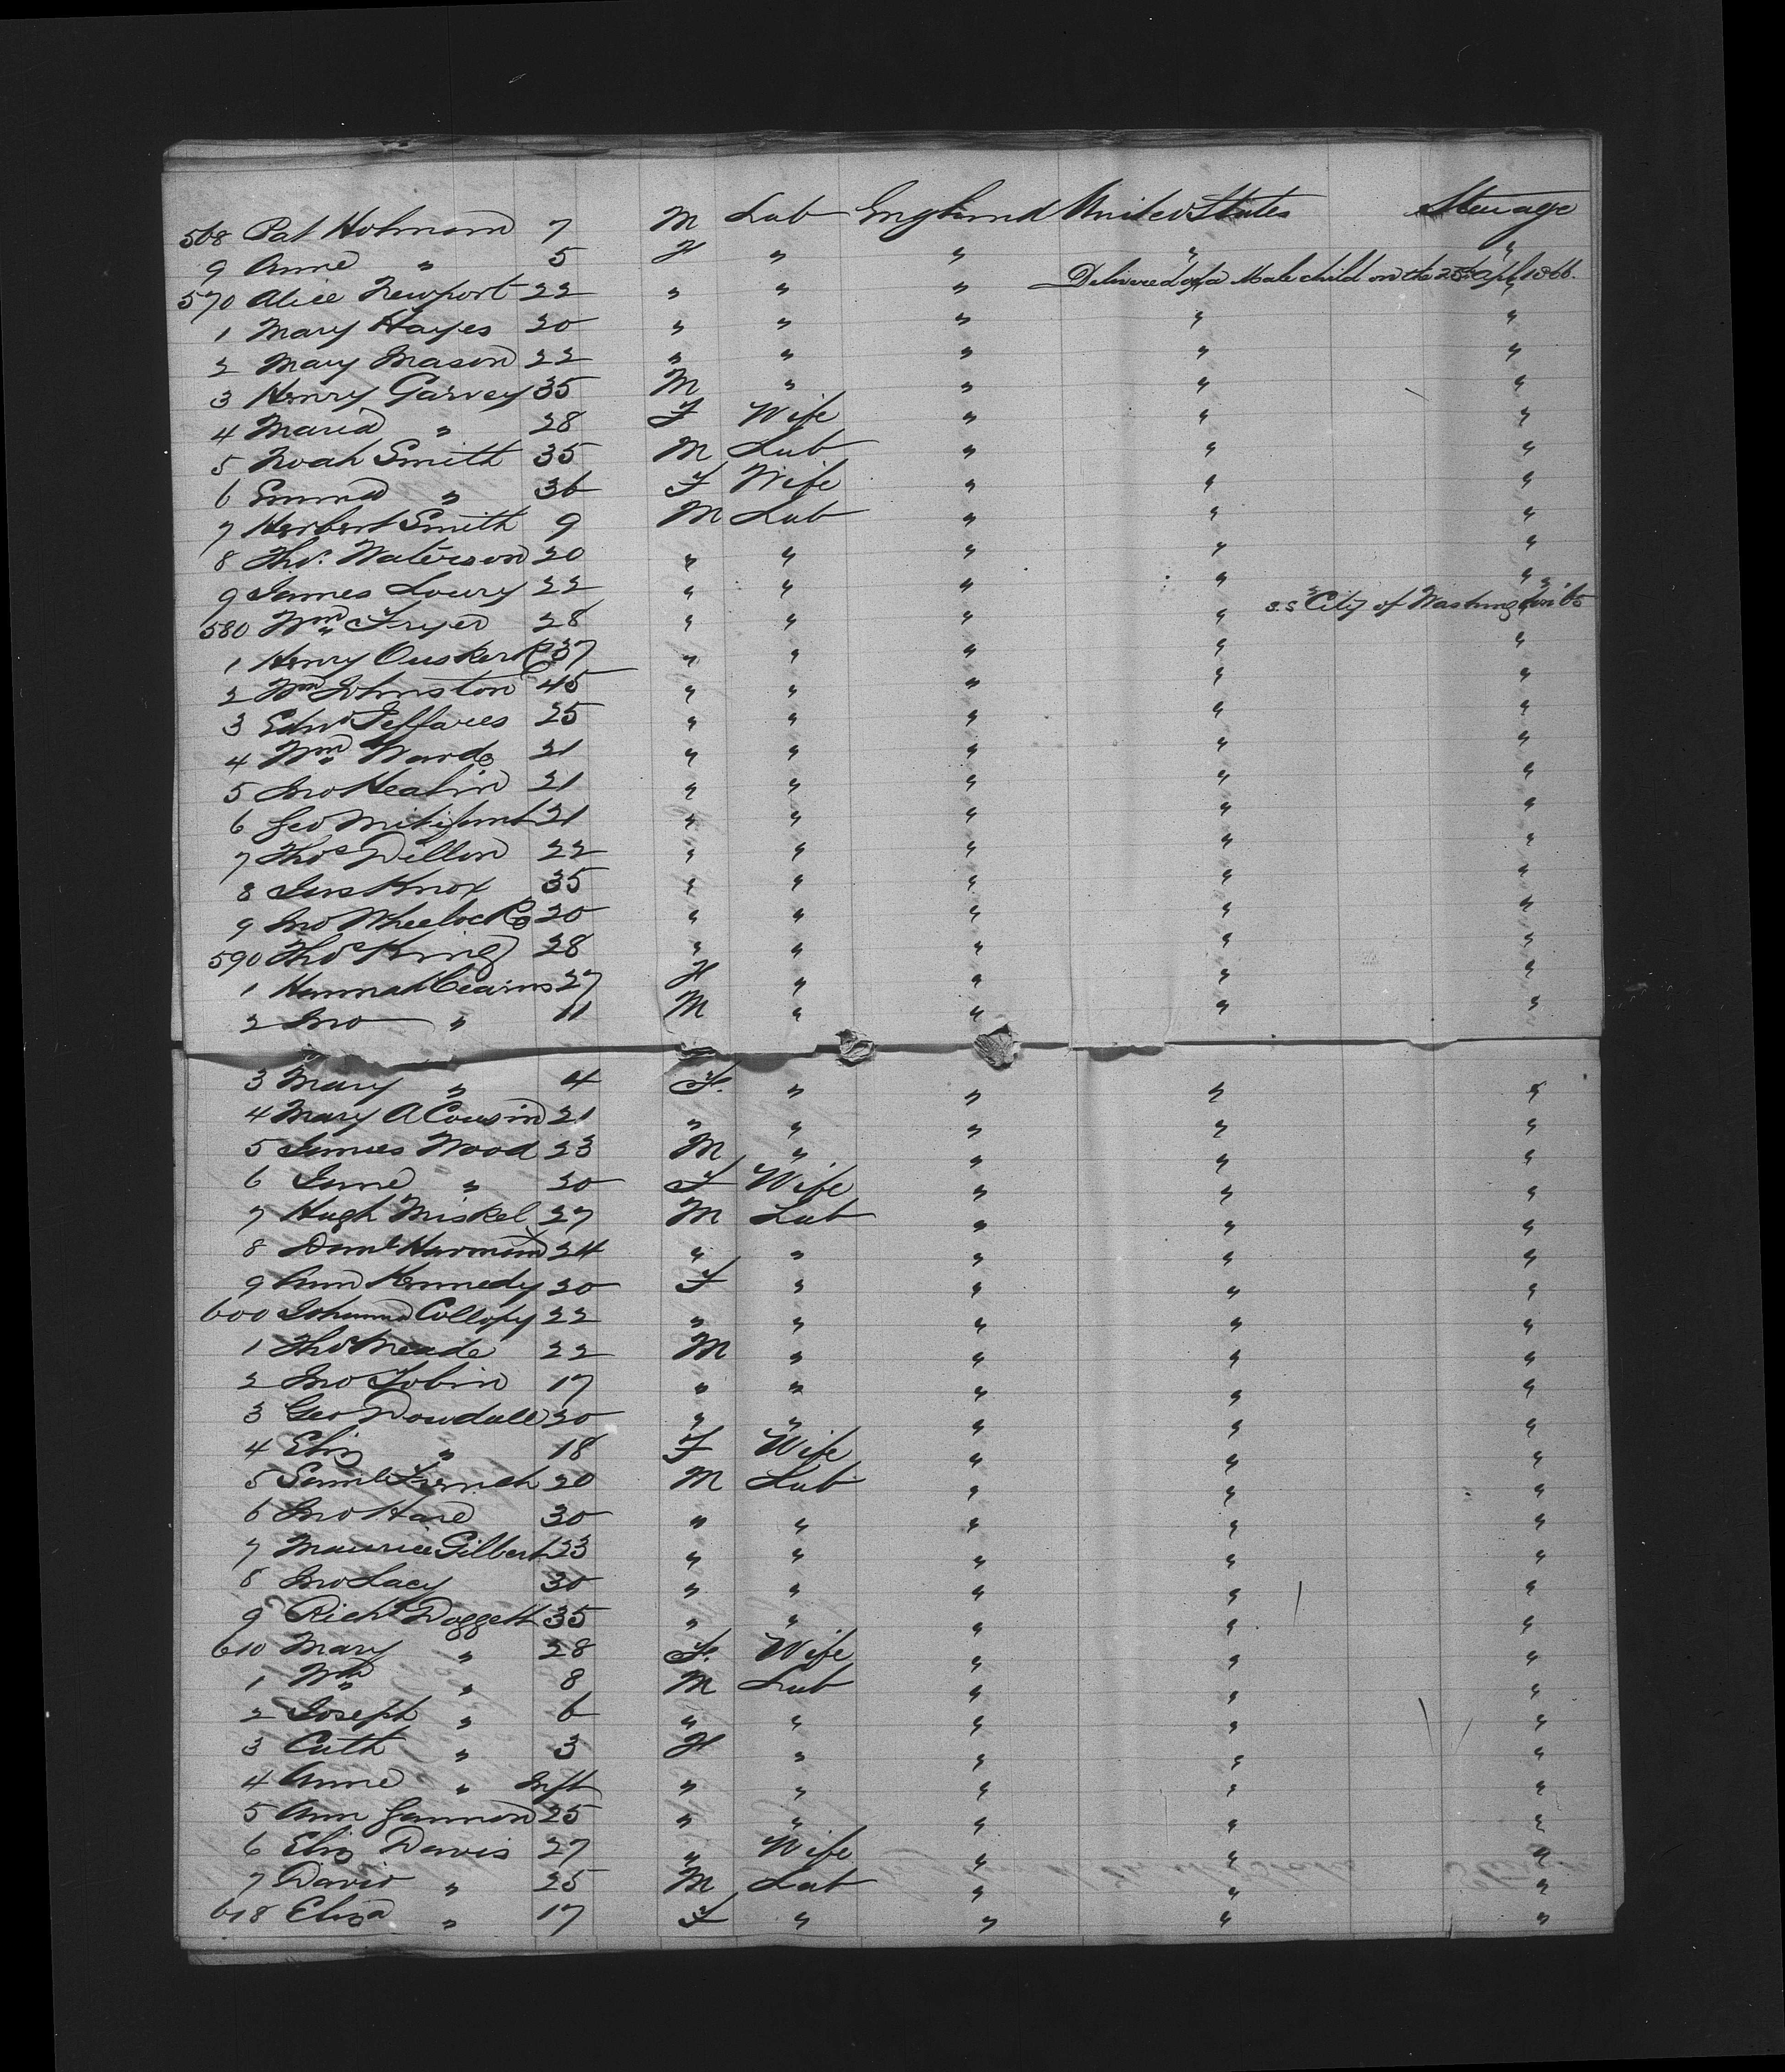 568 Pat Holmann 7 M Lab England United States Steerage
9 Anne " 5 F " " " "
570 Alice Newport 22 " " " Delivered of a Male child on the 25th Apl 1866. "
1 Mary Hayes 20 " " " " "
2 Mary Mason 22 " " " " "
3 Henry Garvey 35 M " " " "
4 Maria " 28 F Wife " " "
5 Noah Smith 35 M Lab " " "
6 Emma " 36 F Wife " " "
7 Herbert Smith 9 M Lab " " "
8 Thos. Waterson 20 " " " " "
9 James Lowry 22 " " " " "
580 Wm Fryer 28 " " " " s.s City of Washington 65
1 Henry Ouskerk 37 " " " " "
2 Wm Johnston 45 " " " " "
3 Edwd Jeffares 25 " " " " "
4 Wm Wards 21 " " " " "
5 Jno Healin 21 " " " " "
6 Geo 21 " " " " "
7 Thos Dillon 22 " " " " "
8 Jas Knox 35 " " " " "
9 Jno Wheelock 20 " " " " "
590 Thos King 28 " " " " "
1 Hannah Cearns 27 F " " " "
2 Jno " 11 M " " " "
3 Mary " 4 F. " " " "
4 Mary A Cousin 21 " " " " "
5 James Wood 23 M " " " "
6 Jane " 20 F Wife " " "
7 Hugh Miskel 27 M Lab " " "
8 Danl Harmon 24 " " " " "
9 Ann Kennedy 20 F " " " "
600 Johanna Collopy 22 " " " " "
1 Thos Meade 22 M " " " "
2 Jno Tobin 17 " " " " "
3 Geo Dowdall 20 " " " " "
4 Eliz " 18 F Wife " " "
5 Saml French 20 M Lab " " "
6 Jno Hare 30 " " " " "
7 Maurice Gilbert 23 " " " " "
8 Jno Lacy 30 " " " " "
9 Richd Doggett 35 " " " " "
610 Mary " 28 F. Wife " " "
1 Wm " 8 M Lab " " "
2 Joseph " 6 " " " " "
3 Cath " 3 F " " " "
4 Anne " Inft " " " " "
5 Ann Gannon 25 " " " " "
6 Eliz Davis 27 " Wife " " "
7 David " 25 M Lab " " "
618 Eliza " 17 F " " " "